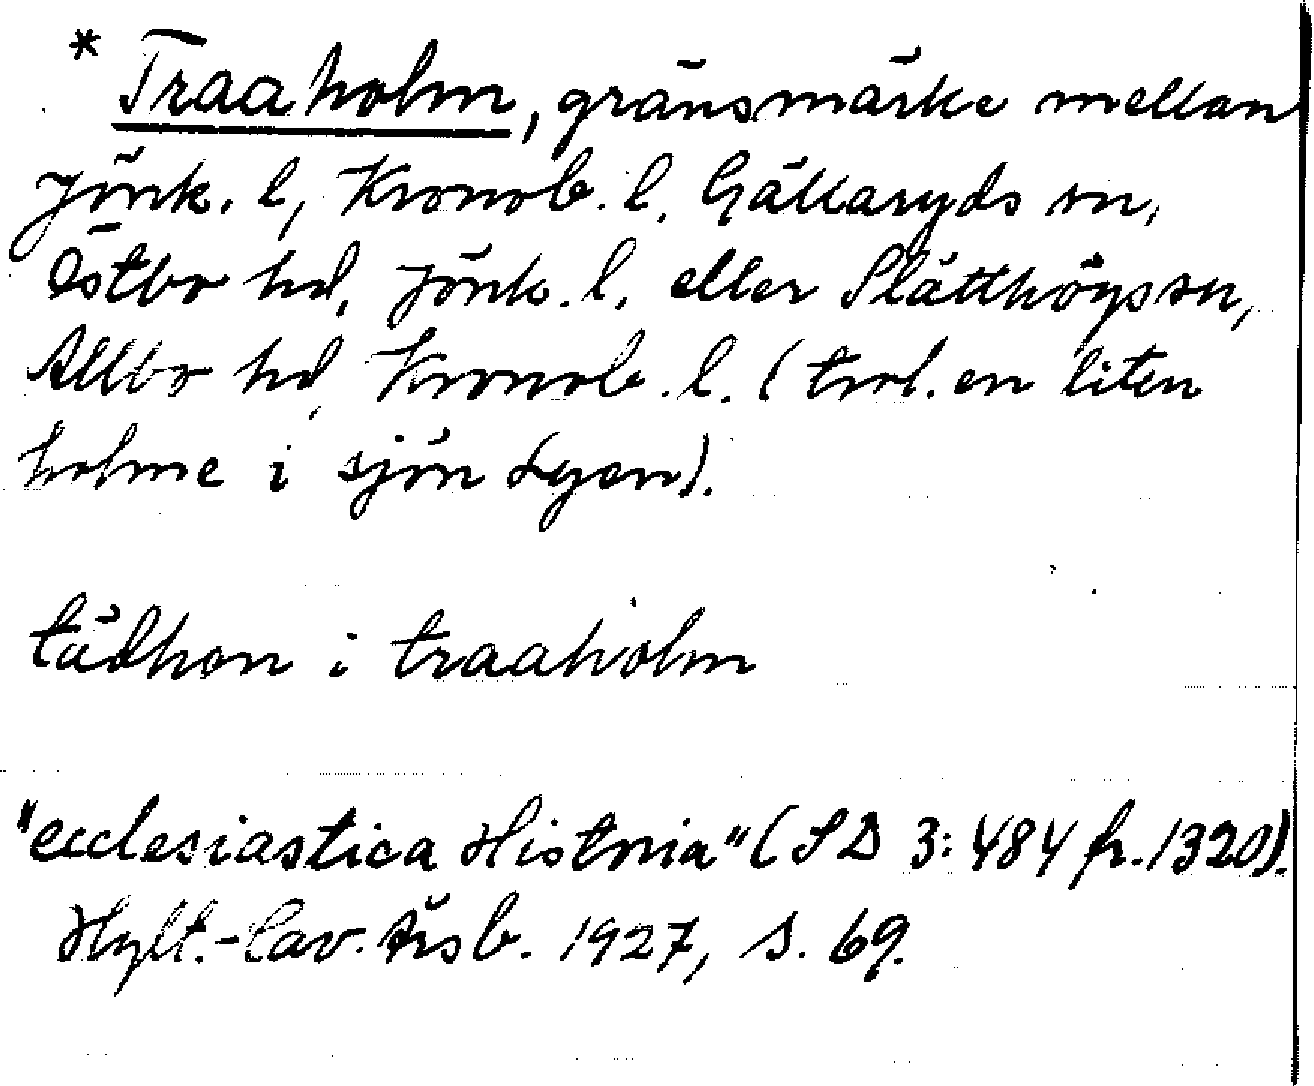 * Traaholm, gränsmärke mellan
Jönk. l, Kronob. l. Gällaryds sn,
Östbo hd, Jönk. l. eller Slätthögs sn,
Allbo hd, Kronob. l. (trol. en liten
holme i sjön Lyen).
tädhon i traaholm
"ecclesiastica Historia" (SD 3: 484 fr. 1320).
Hylt.-Cav. Årsb. 1927, s. 69.